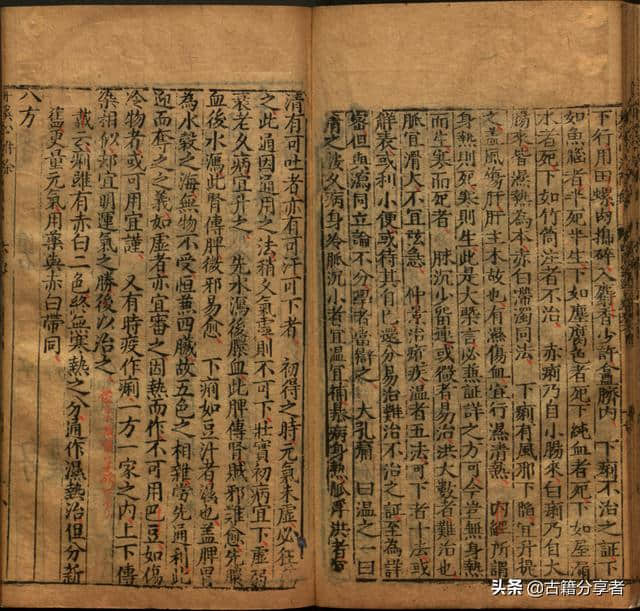 下行用田螺肉搗碎入麝香少許盦臍內　下痢不治之証下
如魚腦者半死半生下如塵腐色者死下純血者死下如屋漏
水者死下如竹筒注者不治　赤痢乃自小腸來白痢乃自大
腸來皆濕熱為本赤白帶濁同法　下痢有風邪下陷宜升提
之蓋風傷肝肝主木故也有濕傷血宜行濕清熱　內經所謂
身熱則死寒則生此是大槩言必兼証詳之方可今豈無身熱
而生寒而死者　脉沉少留連或微者易治洪大數者難治也
脉宜滑大不宜弦急　仲景治痢疾溫者五法可下者十法或
解表或利小便或待其自已還分易治難治不治之証至為詳
密但與瀉同立論不分學者當辯之　大孔痛　曰溫之一曰
清之按久病身冷脉沉小者宜溫宜補暴病身熱脉浮洪者宜
清有可吐者亦有可汗可下者　初得之時元氣未虛必推
之此通因通用之法稍久氣虛則不可下壯實初病宜下虛弱
衰老久病宜升之　先水瀉後膿血此脾傳腎賊邪難愈先膿
血後水瀉此腎傳脾微邪易愈　下痢如豆汁者濕也蓋脾胃
為水穀之海無物不受恒兼四臟故五色之相雜當先通利此
迎而奪之之義如虛者亦宜審之因熱而作不可用巴豆如傷
冷物者或可用宜謹　又有時疫作痢一方一家之內上下傳
染相似却宜明運氣之勝復以治之
戴云痢雖有赤白二色終無寒熱之分通作濕熱治但分新
舊更量元氣用藥與赤白帶同
八方
头条 @古籍分享者